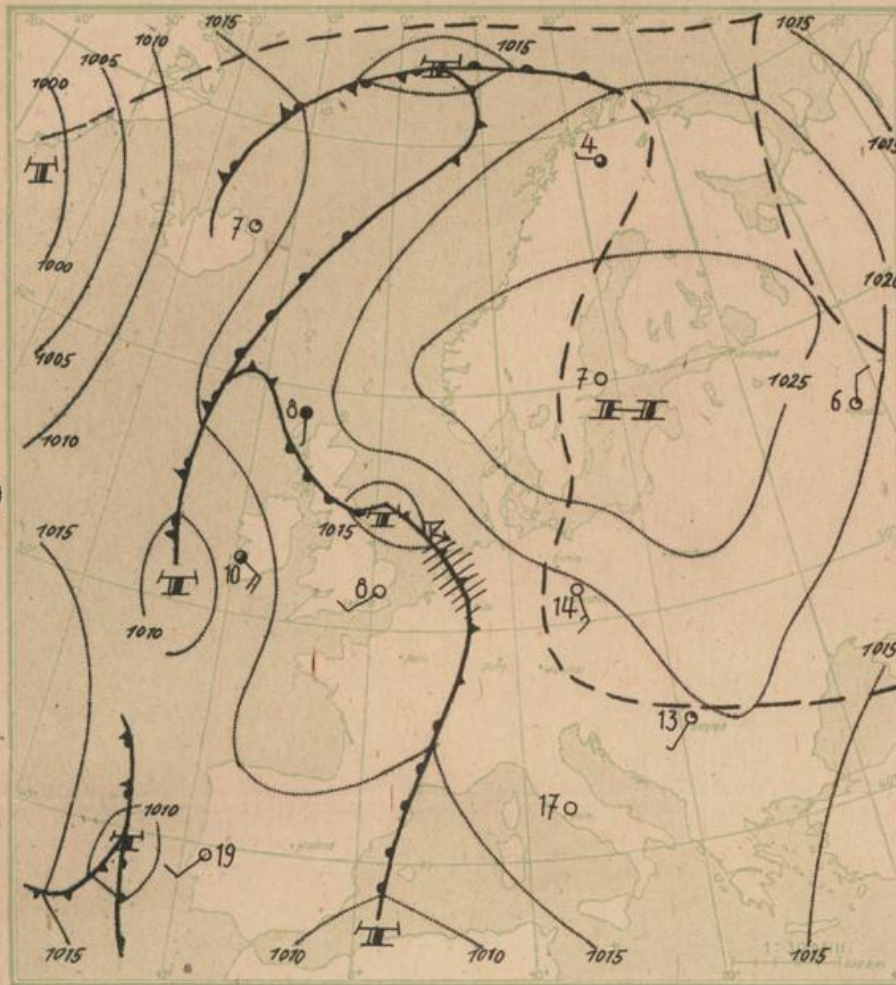 1015
1010
1005
1000
1015
1015
1015
T
T
4
7
1000
1020
1005
7
1025
6
8
H
1010
1015
T
1015
10
T
8
14
1010
1015
13
1010
17
T
19
T
1015
1010
1010
1015
1015